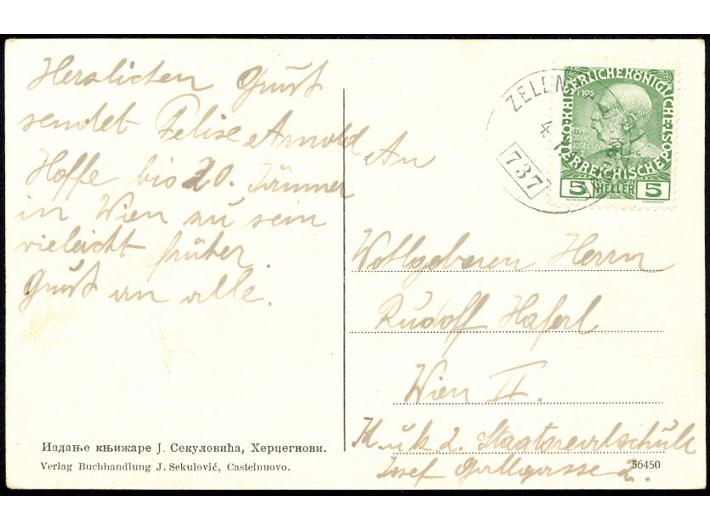 Herzlichen Gruß
sendet Felise Arnold
Hoffe bis 20. Jänner
in Wien zu sein
vieleicht früher.
Gruß an alle.
An
Wollgeboren Herrn
Rudolf Haferl
Wien II.
K. u k 2. Staatsrealschule
Josef Gallgasse 2.
Издање књижаре Ј. Секуловића, Херцегнови.
Verlag Buchhandlung J. Sekulović, Castelnuovo.
56450
737
KAISERLICHE KÖNIGLICHE
ÖSTERREICHISCHE POST
5 HELLER 5